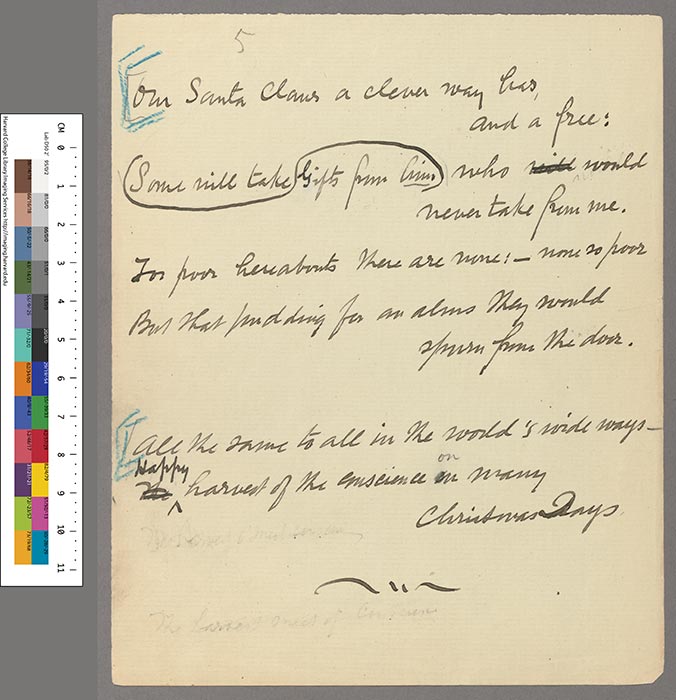 5
Our Santa Claus a clever way has,
and a free:
Some will take Gifts from him who will would
never take from me.
For poor hereabouts there are none:— none so poor
But that pudding for an alms they would
spurn from the door.
All the same to all in the world's wide ways—
Happy
The harvest of the conscience on many
on
Christmas Days.
The harvest of
CM 0 1 2 3 4 5 6 7 8 9 10 11
Harvard College Library Imaging Services